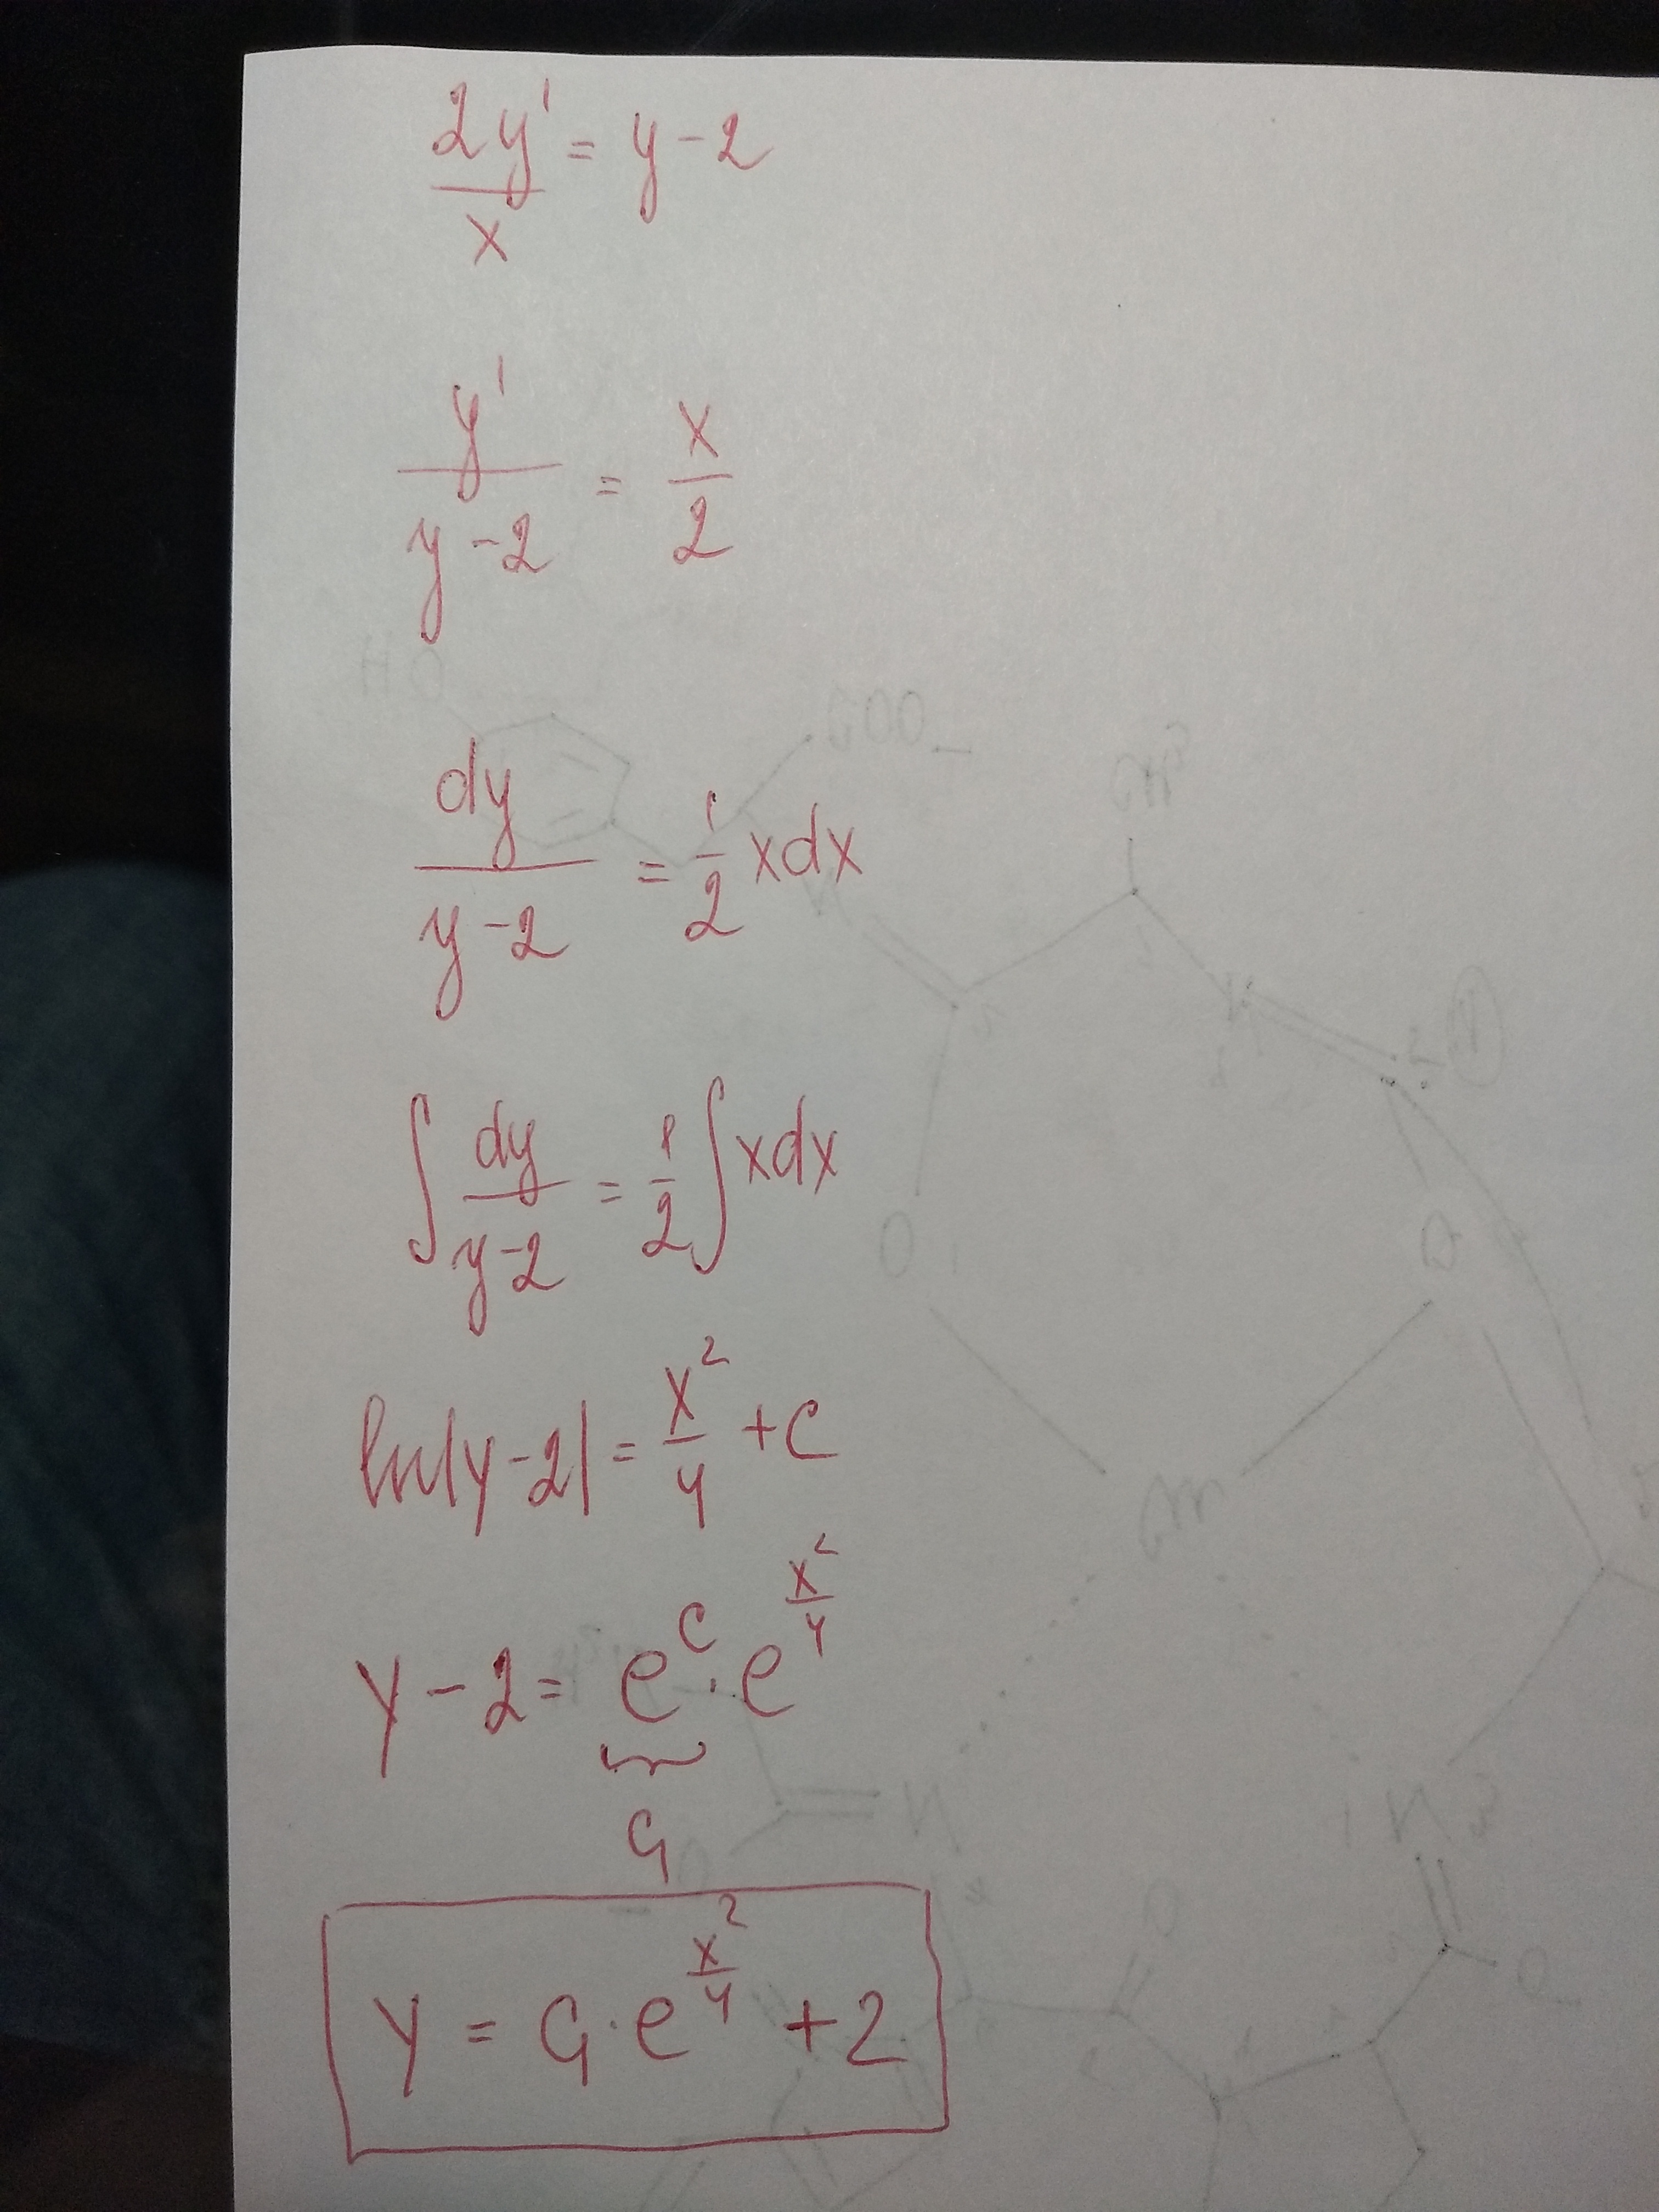 2y'/x = y-2
y'/(y-2) = x/2
dy/(y-2) = 1/2 xdx
∫ dy/(y-2) = 1/2 ∫ xdx
ln|y-2| = x²/4 + C
y-2 = e^C · e^(x²/4)
C₁
y = C₁ · e^(x²/4) + 2